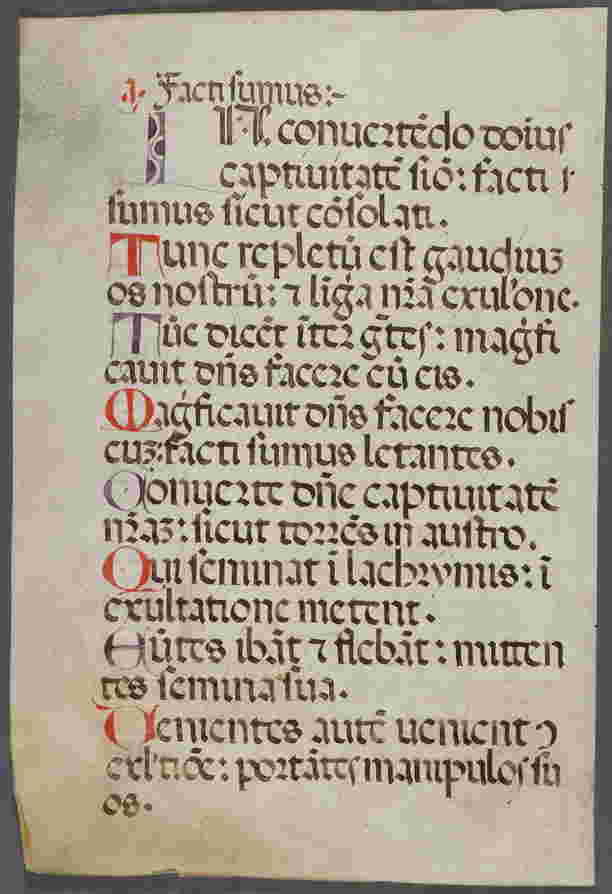 a. Facti sumus:~
IN conuertēdo dn̄s
captiuitatē siō: facti s
sumus sicut cōsolati.
Tunc repletū est gaudiuz
os nostrū: ⁊ lĩg̃a nr̄ā exul'one.
Tūc dicēt īter g̃tes: mag̃fi
cauit dn̄s facere cū eis.
Mag̃ficauit dn̄s facere nobis
cuz: facti sumus letantes.
Conuerte dn̄e captiuitatē
nr̄az: sicut torrēs in austro.
Qui seminat ī lachrymis: ī
exultatione metent.
Eūtes ibāt ⁊ flebāt: mitten
tes semina sua.
Uenientes autē uenient
exl'tiōe: portātes manipulos su
os.